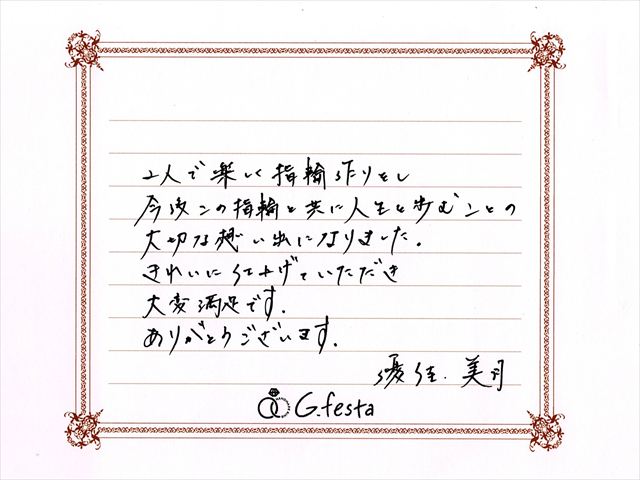 2人で楽しく指輪作りをし
今後この指輪と共に人生を歩むことの
大切な想い出になりました。
きれいに仕上げていただき
大変満足です。
ありがとうございます。
優佳. 美月
G.festa